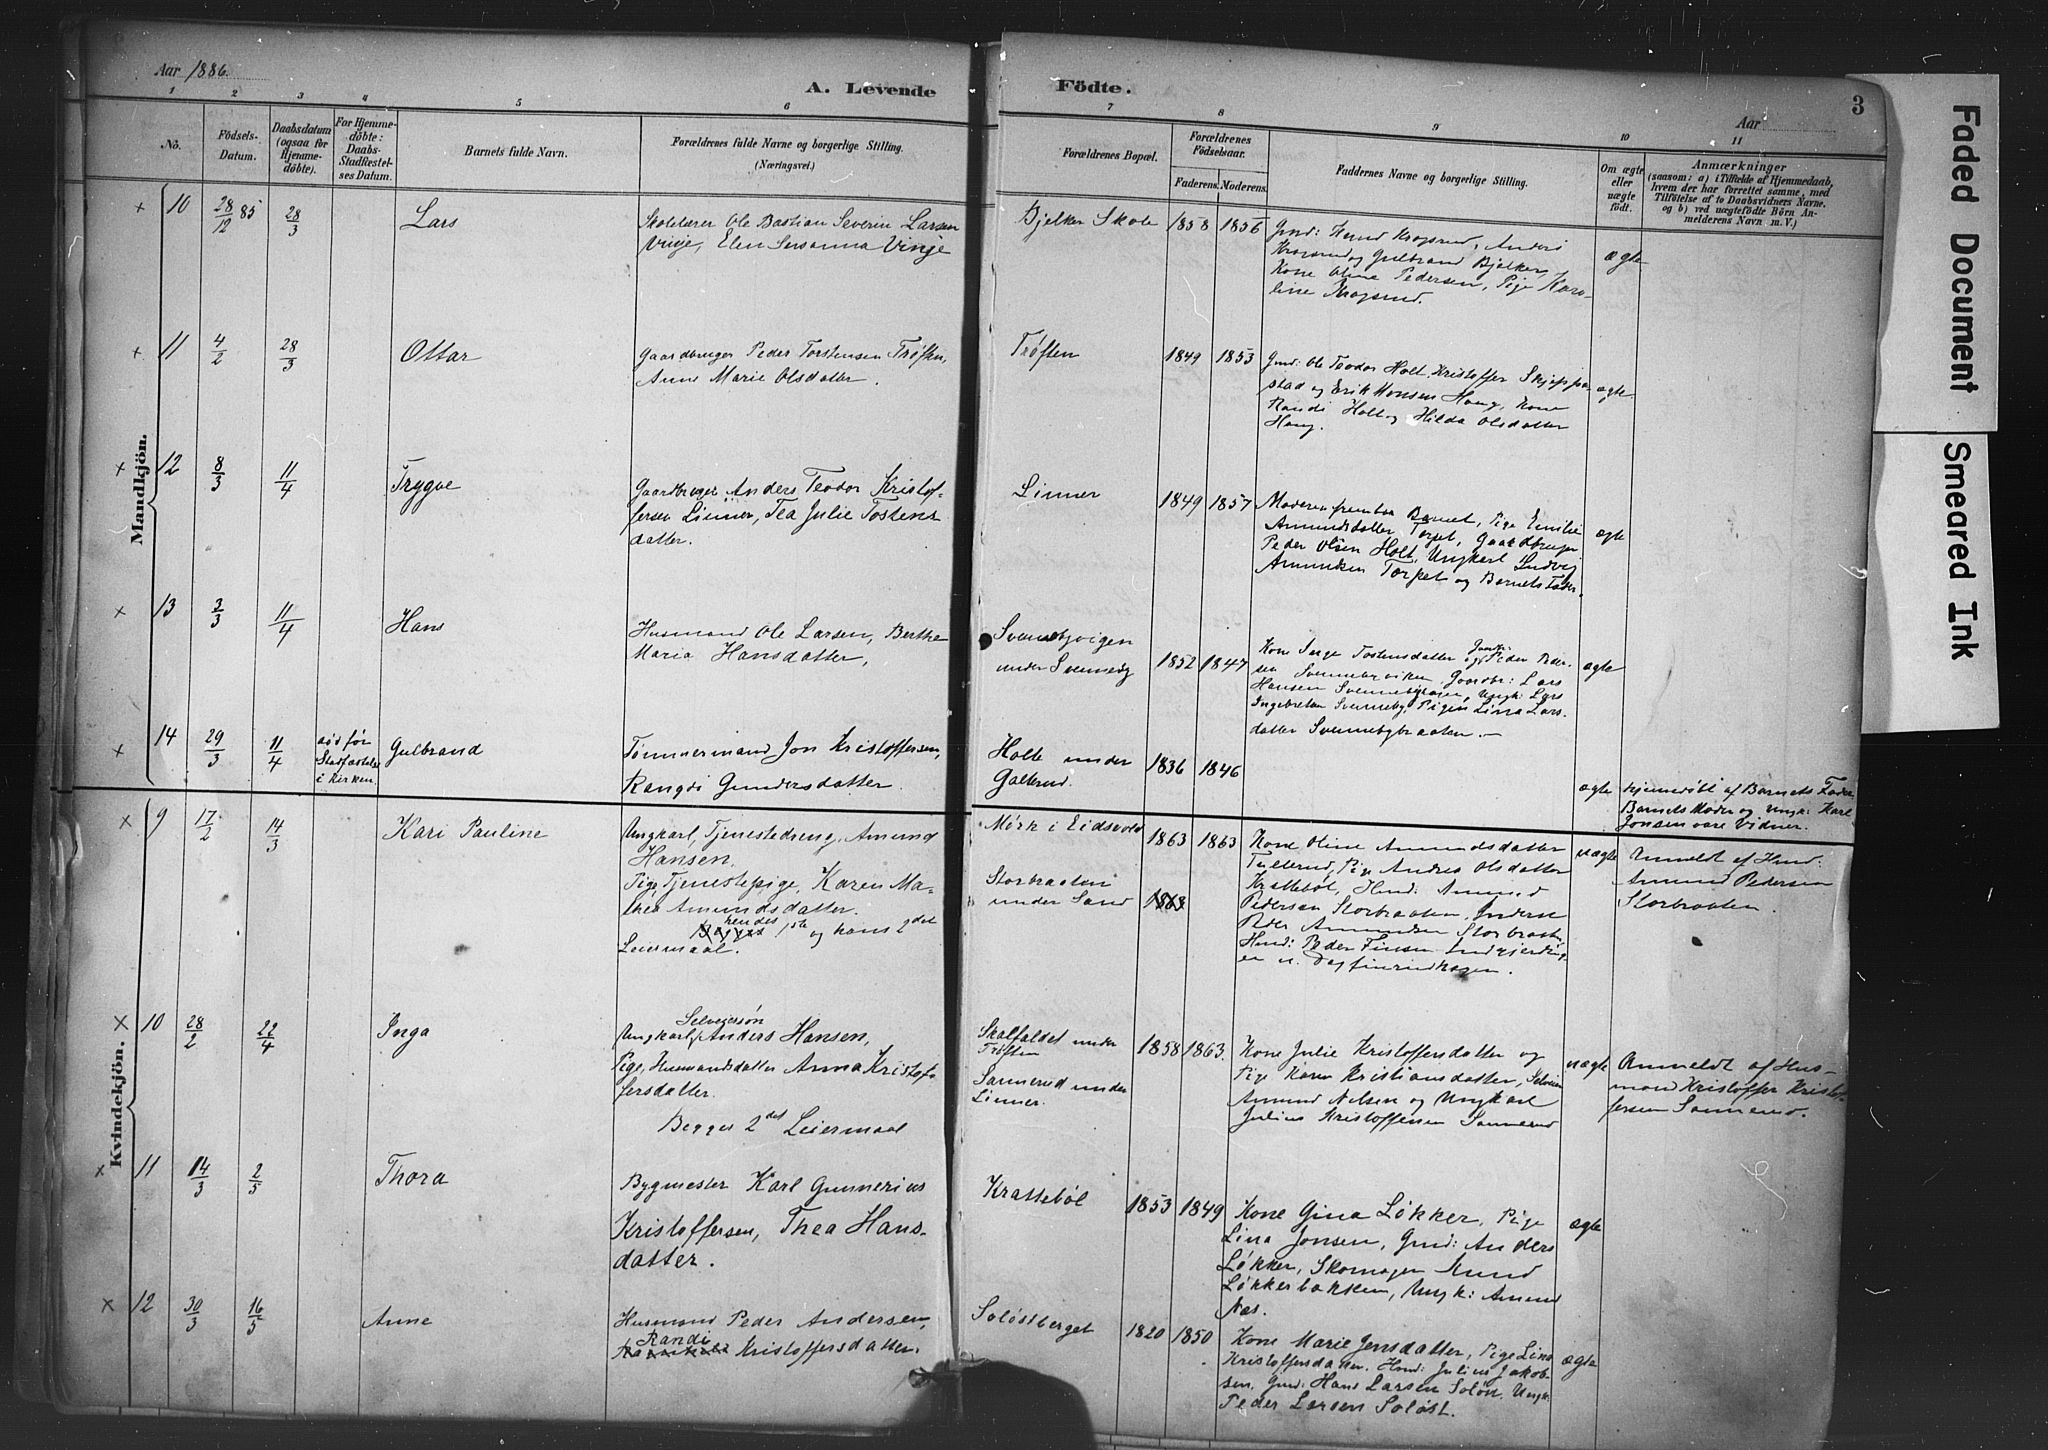 Aar 1886.
A. Levende Födte.
Aar
3
1 2 3 4 5 6 7 8 9 10 11
No.
Födsels-Datum.
Daabsdatum (ogsaa for Hjemme-döbte).
For Hjemme-döbte: Daabs-Stadfæstel-ses Datum.
Barnets fulde Navn.
Forældrenes fulde Navne og borgerlige Stilling.
(Næringsvei.)
Forældrenes Bopæl.
Forældrenes Födselsaar.
Faderens. Moderens.
Faddernes Navne og borgerlige Stilling.
Om ægte eller uægte födt.
Anmærkninger
(saasom: a) i Tilfælde af Hjemmedaab,
hvem der har forrettet samme, med
Tilföielse af to Daabsvidners Navne.
og b) ved uægtefödte Börn An-
melderens Navn m. V.)
Mandkjön.
× 10 28/12 85 28/3 Lars
Skolelærer Ole Bastian Severin Larsen
Vinje, Elen Susanna Vinje
Bjelker Skole 1858 1856
Gmd: Knud Krogsrud, Anders
Krogsrud og Gulbrand Bjelker,
Kone Oline Pedersen, Pige Karo-
line Krogsrud.
ægte
× 11 4/2 28/3 Ottar
Gaardbruger Peder Torstensen Trøften,
Anne Marie Olsdatter.
Trøften 1849 1853
Gmd: Ole Teodor Holt, Kristoffer Skjeppe-
stad og Erik Monsen Haug, Kone
Randi Holt og Hilda Olsdatter
Haug.
ægte
× 12 8/3 11/4 Trygve
Gaardbruger Anders Teodor Kristof-
fersen Linner, Tea Julie Tostens
datter.
Linner 1849 1857
Moderen frembar Barnet, Pige Emilie
Amundsdatter Torpet, Gaardbruger
Peder Olsen Holt, Ungkarl Ludvig
Amundsen Torpet og Barnets Fader.
ægte
× 13 3/3 11/4 Hans
Husmand Ole Larsen, Berthe
Maria Hansdatter,
Svennebyvigen
under Svenneby
1852 1847
Kone Inge Tostensdatter og Peder Peder-
sen Svennebyviken, Gaardbr: Lars
Hansen Svennebybraaten, Ungk: Lars
Ingebretsen Svenneby, Pigen Lina Lars-
datter Svennebybraaten.
ægte
× 14 29/3 11/4 død før
Stadfæstelse
i Kirken
Gulbrand
Tømmermand Jon Kristoffersen,
Rangdi Gundersdatter.
Holte under
Galterud.
1836 1846
ægte
Hjemdøbt af Barnets Fader,
Barnets Moder og Ungk: Karl
Jonsen vare Vidner.
Kvindekjön.
× 9 17/2 14/3 Kari Pauline
Ungkarl, Tjenestedreng, Amund
Hansen,
Pige, Tjenestepige, Karen Ma-
thea Amundsdatter.
Begges hendes 1ste og hans 2det
Leiermaal.
Mørk i Eidsvold
Storbraaten
under Sand
1863 1863
1863
Kone Oline Amundsdatter
Tullerud, Pige Andrea Olsdatter
Krattebøl, Hmd: Amund
Pedersen Storbraaten, Inderst
Peder Amundsen Storbraaten,
Hmd: Peder Finsen
uægte
Anmeldt af Hmd:
Amund Pedersen
Storbraaten.
× 10 28/2 22/4 Inga
Selveiersøn
Ungkarl, Anders Hansen,
Pige, Husmandsdatter Anna Kristof-
fersdatter.
Begges 2det Leiermaal
Skalfaldet under
Trøften
Sannerud under
Linner.
1858 1863.
Kone Julie Kristoffersdatter og
Pige Karen Kristiansdatter, Selveier
Amund Nilsen og Ungkarl
Julius Kristoffersen Sannerud
uægte
Anmeldt af Hus-
mand Kristoffer Kristof-
fersen Sannerud.
× 11 14/3 2/5 Thora
Bygmester Karl Gunnerius
Kristoffersen, Thea Hans-
datter.
Krattebøl 1853 1849
Kone Gina Løkker, Pige
Lina Jonsen, Gmd: Anders
Løkker, Skomager Knud
Løkkerbakken, Ungk: Amund
Næs.
ægte
× 12 30/3 16/5 Anne
Husmand Peder Andersen,
Randi
Kristoffersdatter.
Soløstberget 1820 1850
Kone Marie Jensdatter, Pige Lina
Kristoffersdatter, Hmd: Julius Jakob-
sen, Gmd: Hans Larsen Soløst, Ungk:
Peder Larsen Soløst.
ægte
Faded Document
Smeared Ink